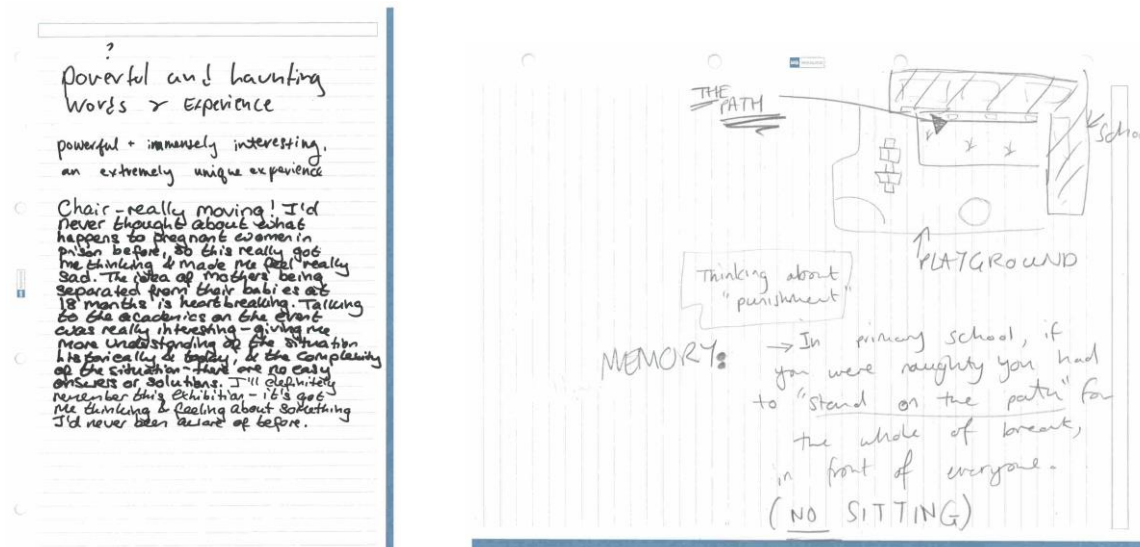 ?
powerful and haunting
words & Experience
powerful + immensely interesting.
an extremely unique experience
Chair - really moving! I'd
never thought about what
happens to pregnant women in
prison before, so this really got
me thinking & made me feel really
sad. The idea of mothers being
separated from their babies at
18 months is heartbreaking. Talking
to the academics on the event
was really interesting - giving me
more understanding of the situation
historically & today, & the complexity
of the situation - there are no easy
answers or solutions. I'll definitely
remember this exhibition - it's got
me thinking & feeling about something
I'd never been aware of before.
THE
PATH
Scho
PLAYGROUND
Thinking about
"punishment"
MEMORY:
→ In primary school, if
you were naughty you had
to "stand on the path" for
the whole of break,
in front of everyone.
(NO SITTING)